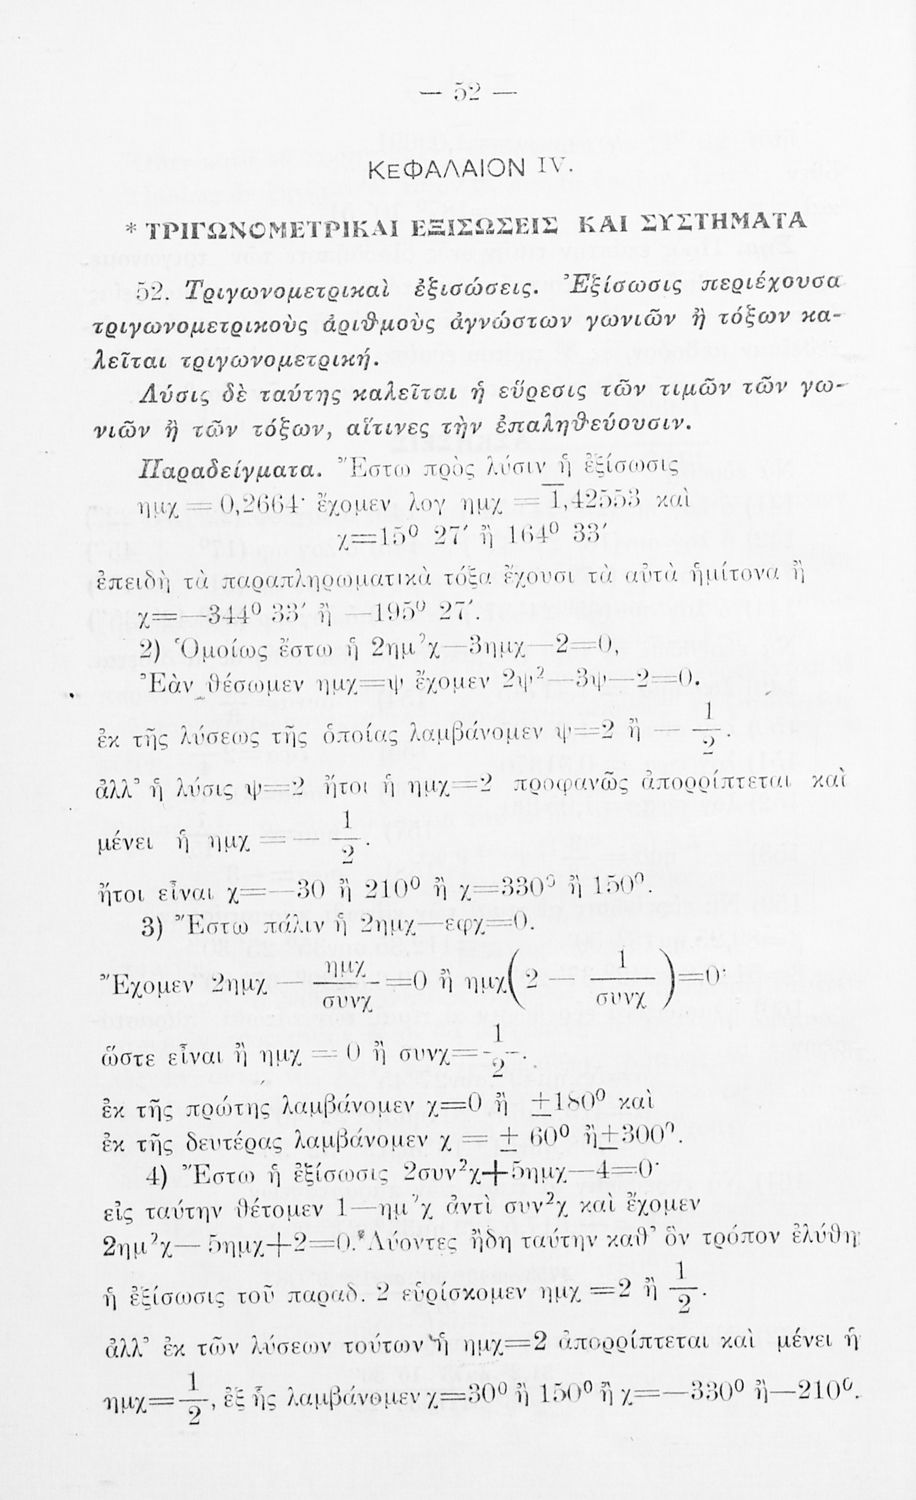 — 52 —
ΚΕΦΑΛΑΙΟΝ IV.
* ΤΡΙΓΩΝΟΜΕΤΡΙΚΑΙ ΕΞΙΣΩΣΕΙΣ ΚΑΙ ΣΥΣΤΗΜΑΤΑ
52. Τριγωνομετρικαὶ ἐξισώσεις. Ἐξίσωσις περιέχουσα
τριγωνομετρικοὺς ἀριθμοὺς ἀγνώστων γωνιῶν ἢ τόξων κα-
λεῖται τριγωνομετρική.
Λύσις δὲ ταύτης καλεῖται ἡ εὕρεσις τῶν τιμῶν τῶν γω-
νιῶν ἢ τῶν τόξων, αἵτινες τὴν ἐπαληθεύουσιν.
Παραδείγματα. Ἔστω πρὸς λύσιν ἡ ἐξίσωσις
ημχ = 0,2664· ἔχομεν λογ ημχ = 1̅,42553 καὶ
χ=15° 27′ ἢ 164° 33′
ἐπειδὴ τὰ παραπληρωματικὰ τόξα ἔχουσι τὰ αὐτὰ ἡμίτονα ἢ
χ=—344° 33′ ἢ —195° 27′.
2) Ὁμοίως ἔστω ἡ 2ημ²χ—3ημχ—2=0,
Ἐὰν θέσωμεν ημχ=ψ ἔχομεν 2ψ²—3ψ—2=0.
ἐκ τῆς λύσεως τῆς ὁποίας λαμβάνομεν ψ=2 ἢ — 1/2.
ἀλλ᾽ ἡ λύσις ψ=2 ἤτοι ἡ ημχ=2 προφανῶς ἀπορρίπτεται καὶ
μένει ἡ ημχ = — 1/2.
ἤτοι εἶναι χ=—30 ἢ 210° ἢ χ=330° ἢ 150°.
3) Ἔστω πάλιν ἡ 2ημχ—εφχ=0.
Ἔχομεν 2ημχ — ημχ/συνχ =0 ἢ ημχ(2 — 1/συνχ)=0·
ὥστε εἶναι ἢ ημχ = 0 ἢ συνχ= 1/2.
ἐκ τῆς πρώτης λαμβάνομεν χ=0 ἢ ±180° καὶ
ἐκ τῆς δευτέρας λαμβάνομεν χ = ± 60° ἢ±300°.
4) Ἔστω ἡ ἐξίσωσις 2συν²χ+5ημχ—4=0·
εἰς ταύτην θέτομεν 1—ημ²χ ἀντὶ συν²χ καὶ ἔχομεν
2ημ²χ—5ημχ+2=0. Λύοντες ἤδη ταύτην καθ᾽ ὃν τρόπον ἐλύθη
ἡ ἐξίσωσις τοῦ παραδ. 2 εὑρίσκομεν ημχ =2 ἢ 1/2.
ἀλλ᾽ ἐκ τῶν λύσεων τούτων ἡ ημχ=2 ἀπορρίπτεται καὶ μένει ἡ
ημχ= 1/2, ἐξ ἧς λαμβάνομεν χ=30° ἢ 150° ἢ χ=—330° ἢ—210°.